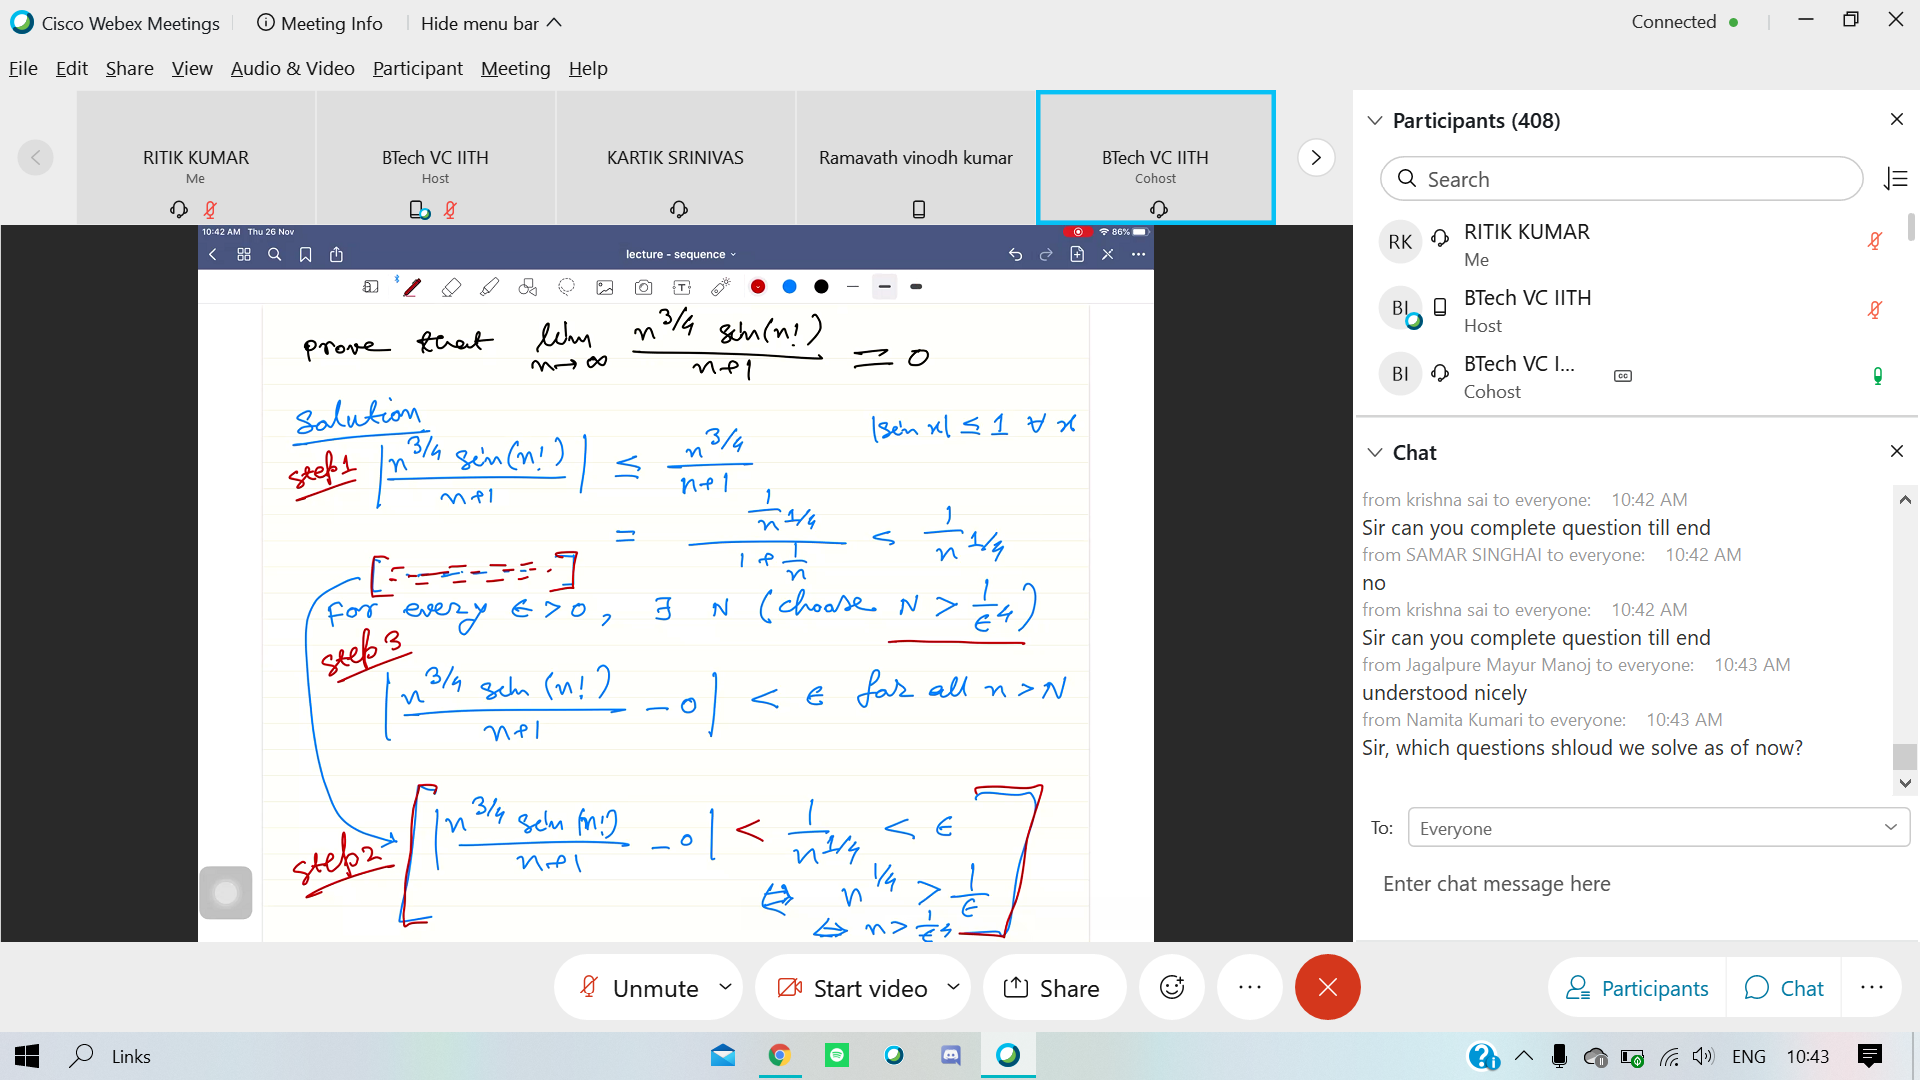 Cisco Webex Meetings
Meeting Info
Hide menu bar
Connected
File Edit Share View Audio & Video Participant Meeting Help
RITIK KUMAR
Me
BTech VC IITH
Host
KARTIK SRINIVAS
Ramavath vinodh kumar
BTech VC IITH
Cohost
10:42 AM Thu 26 Nov
86%
lecture - sequence
prove that lim n→∞ n^3/4 sin(n!) / n+1 = 0
Solution
|sin x| ≤ 1 ∀ x
step1 | n^3/4 sin(n!) / n+1 | ≤ n^3/4 / n+1
= (1/n^1/4) / (1 + 1/n) < 1/n^1/4
For every ε > 0, ∃ N (choose N > 1/ε^4)
step 3
| n^3/4 sin(n!) / n+1 - 0 | < ε for all n > N
step2 | n^3/4 sin(n!) / n+1 - 0 | < 1/n^1/4 < ε
⇔ n^1/4 > 1/ε
⇔ n > 1/ε^4
Participants (408)
Search
RK
RITIK KUMAR
Me
BI
BTech VC IITH
Host
BI
BTech VC I...
Cohost
CC
Chat
from krishna sai to everyone: 10:42 AM
Sir can you complete question till end
from SAMAR SINGHAI to everyone: 10:42 AM
no
from krishna sai to everyone: 10:42 AM
Sir can you complete question till end
from Jagalpure Mayur Manoj to everyone: 10:43 AM
understood nicely
from Namita Kumari to everyone: 10:43 AM
Sir, which questions shloud we solve as of now?
To: Everyone
Enter chat message here
Unmute
Start video
Share
Participants
Chat
Links
ENG
10:43